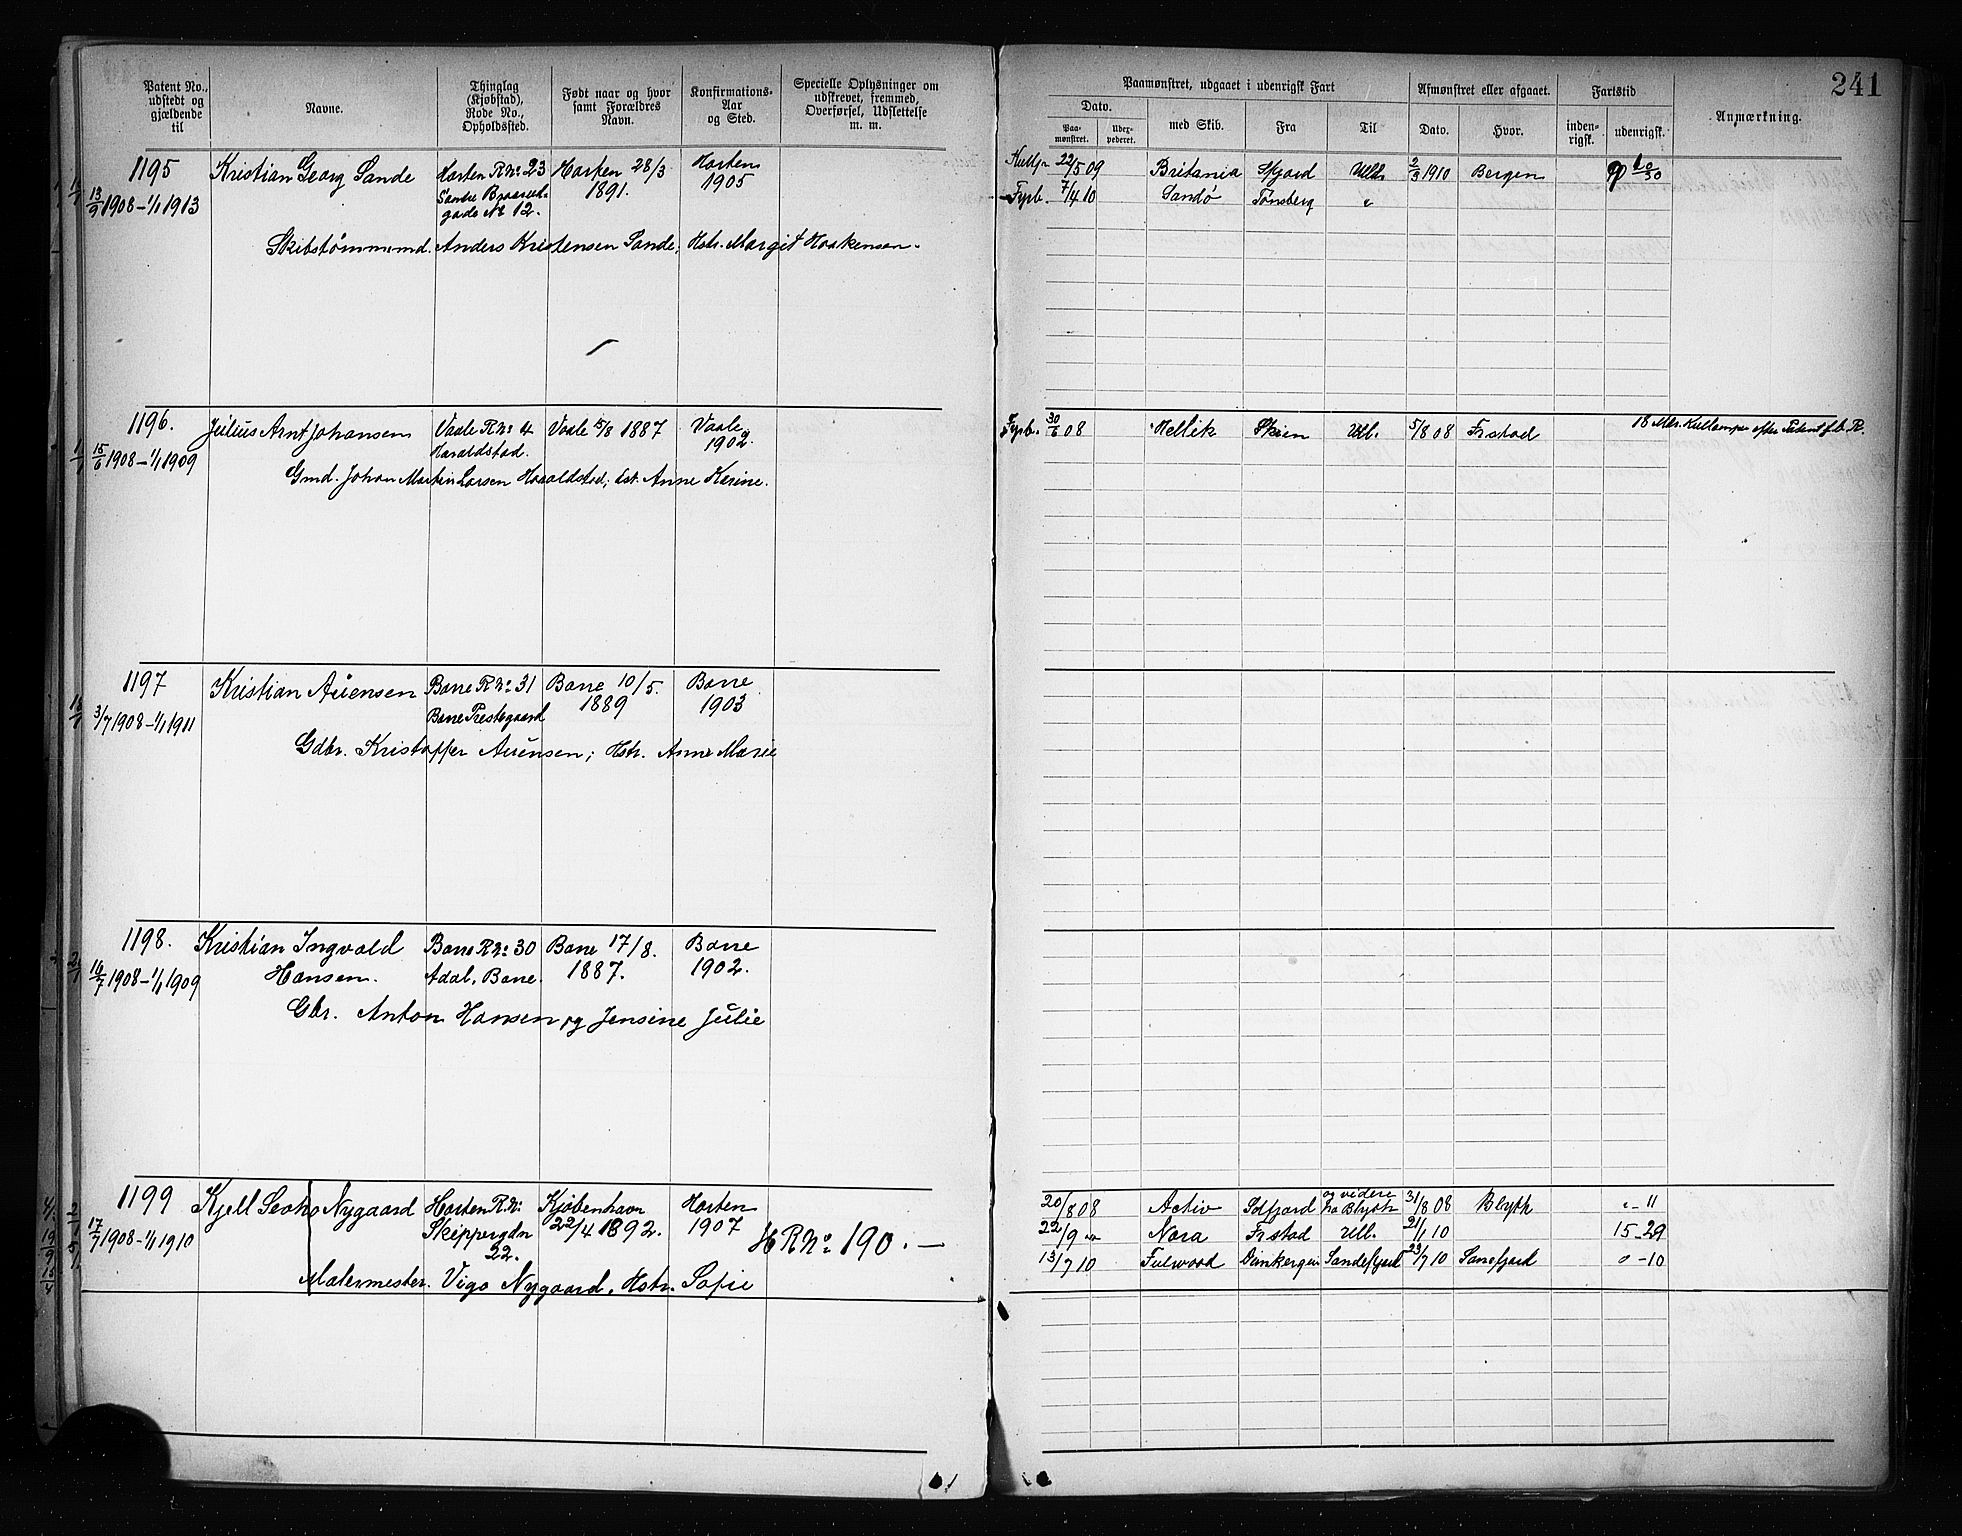 Patent No., udstedt og gjældende til
Navne.
Thinglag (Kjøbstad), Rode No., Opholdssted.
Født naar og hvor samt Forældres Navn.
Konfirmations-Aar og Sted.
Specielle Oplysninger om udskrevet, fremmed, Overførsel, Udslettelse m. m.
1195
13/9 1908 – 1/1 1913
Kristian Georg Sande
Horten R.No 23
Søndre
gade No 12.
Horten 28/3
1891.
Horten
1905
Skibstømmermd. Anders Kristensen Sande, Hstr. Margit Haakensen.
1196.
15/6 1908 – 1/1 1909
Julius Arnt Johansen
Vaale R.No 4
Haraldstad.
Vaale 5/8 1887
Vaale
1902.
Gmd. Johan Martin Larsen Haraldstad; Hst. Anne Karine.
1197
3/7 1908 – 1/1 1911
Kristian Auensen
Borre R.No 31
Borre Prestegaard
Borre 10/5.
1889
Borre
1903
Gdbr. Kristoffer Auensen; Hstr. Anne Marie
1198.
16/7 1908 – 1/1 1909
Kristian Ingvald
Hansen.
Borre R.No 30
Adal, Borre.
Borre 17/8.
1887.
Borre
1902.
Gbr. Anton Hansen og Jensine Julie
1199
17/7 1908 – 1/1 1910
Kjell Nygaard
Horten R.No
Skippergdn
22.
Kjøbenhavn
22/4 1892.
Horten
1907
H R No 190. –
Malermester Vigo Nygaard, Hstr. Sofie
241
Paamønstret, udgaaet i udenrigsk Fart
Afmønstret eller afgaaet.
Fartstid
Anmærkning.
Dato.
Paa-mønstret.
med Skib.
Fra
Til
Dato.
Hvor.
inden-rigsk.
udenrigsk.
22/5 09 Britania Udl. 2/3 1910 Bergen
Fyrb. 7/4 10 Sandø Tønsberg "
Fyrb. 30/6 08 Hellik Skien Udl. 5/8 08 Frstad 18 Mdr. Kullemper efter Patent f.b. R.
20/8 08 Activ Idfjord og videre fra Blyth 31/8 08 Blyth " – 11
22/9 " Nora Frstad Udl. 21/1 10 15 – 29
13/7 10 Fulwood Dünkerque Sandefjord 23/7 10 Sanefjord 0 – 10